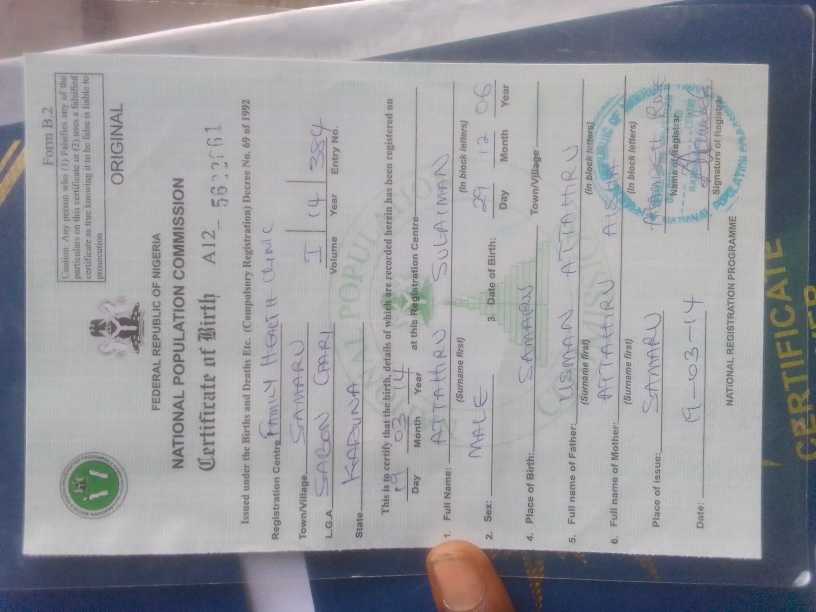 Form B.2
Caution: Any person who (1) Falsifies any of the
particulars on this certificate at (2) uses a falsified
certificate as true knowing it to be false is liable to
prosecution
ORIGINAL
FEDERAL REPUBLIC OF NIGERIA
NATIONAL POPULATION COMMISSION
Certificate of Birth A12-
Issued under the Births and Deaths Etc. (Compulsory Registration) Decree No. 69 of 1992
Registration Centre FAMILY HEALTH CLINIC
Town/Village SAMARU
L.G.A SABON GARI I 14 384
Volume Year Entry No.
State KADUNA
This is to certify that the birth, details of which are recorded herein has been registered on
19 03 14 at this Registration Centre
Day Month Year
1. Full Name: ATTAHIRU SULAIMAN
(Surname first) (In block letters)
2. Sex: MALE 3. Date of Birth: 29 12 06
Day Month Year
4. Place of Birth: SAMARU Town/Village
5. Full name of Father: USMAN ATTAHIRU
(Surname first) (In block letters)
6. Full name of Mother: ATTAHIRU AISHA
(Surname first) (In block letters)
Place of Issue: SAMARU
Name of Registrar
Date: 19-03-14
Signature of Registrar
NATIONAL REGISTRATION PROGRAMME
CERTIFICATE